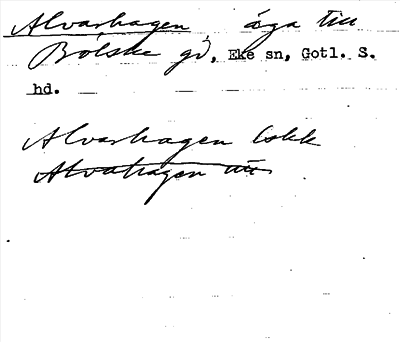 Alvarhagen, äga till
Bölske gd, Eke sn, Gotl. S.
hd.
Alvarhagen lskk
Alvahagen